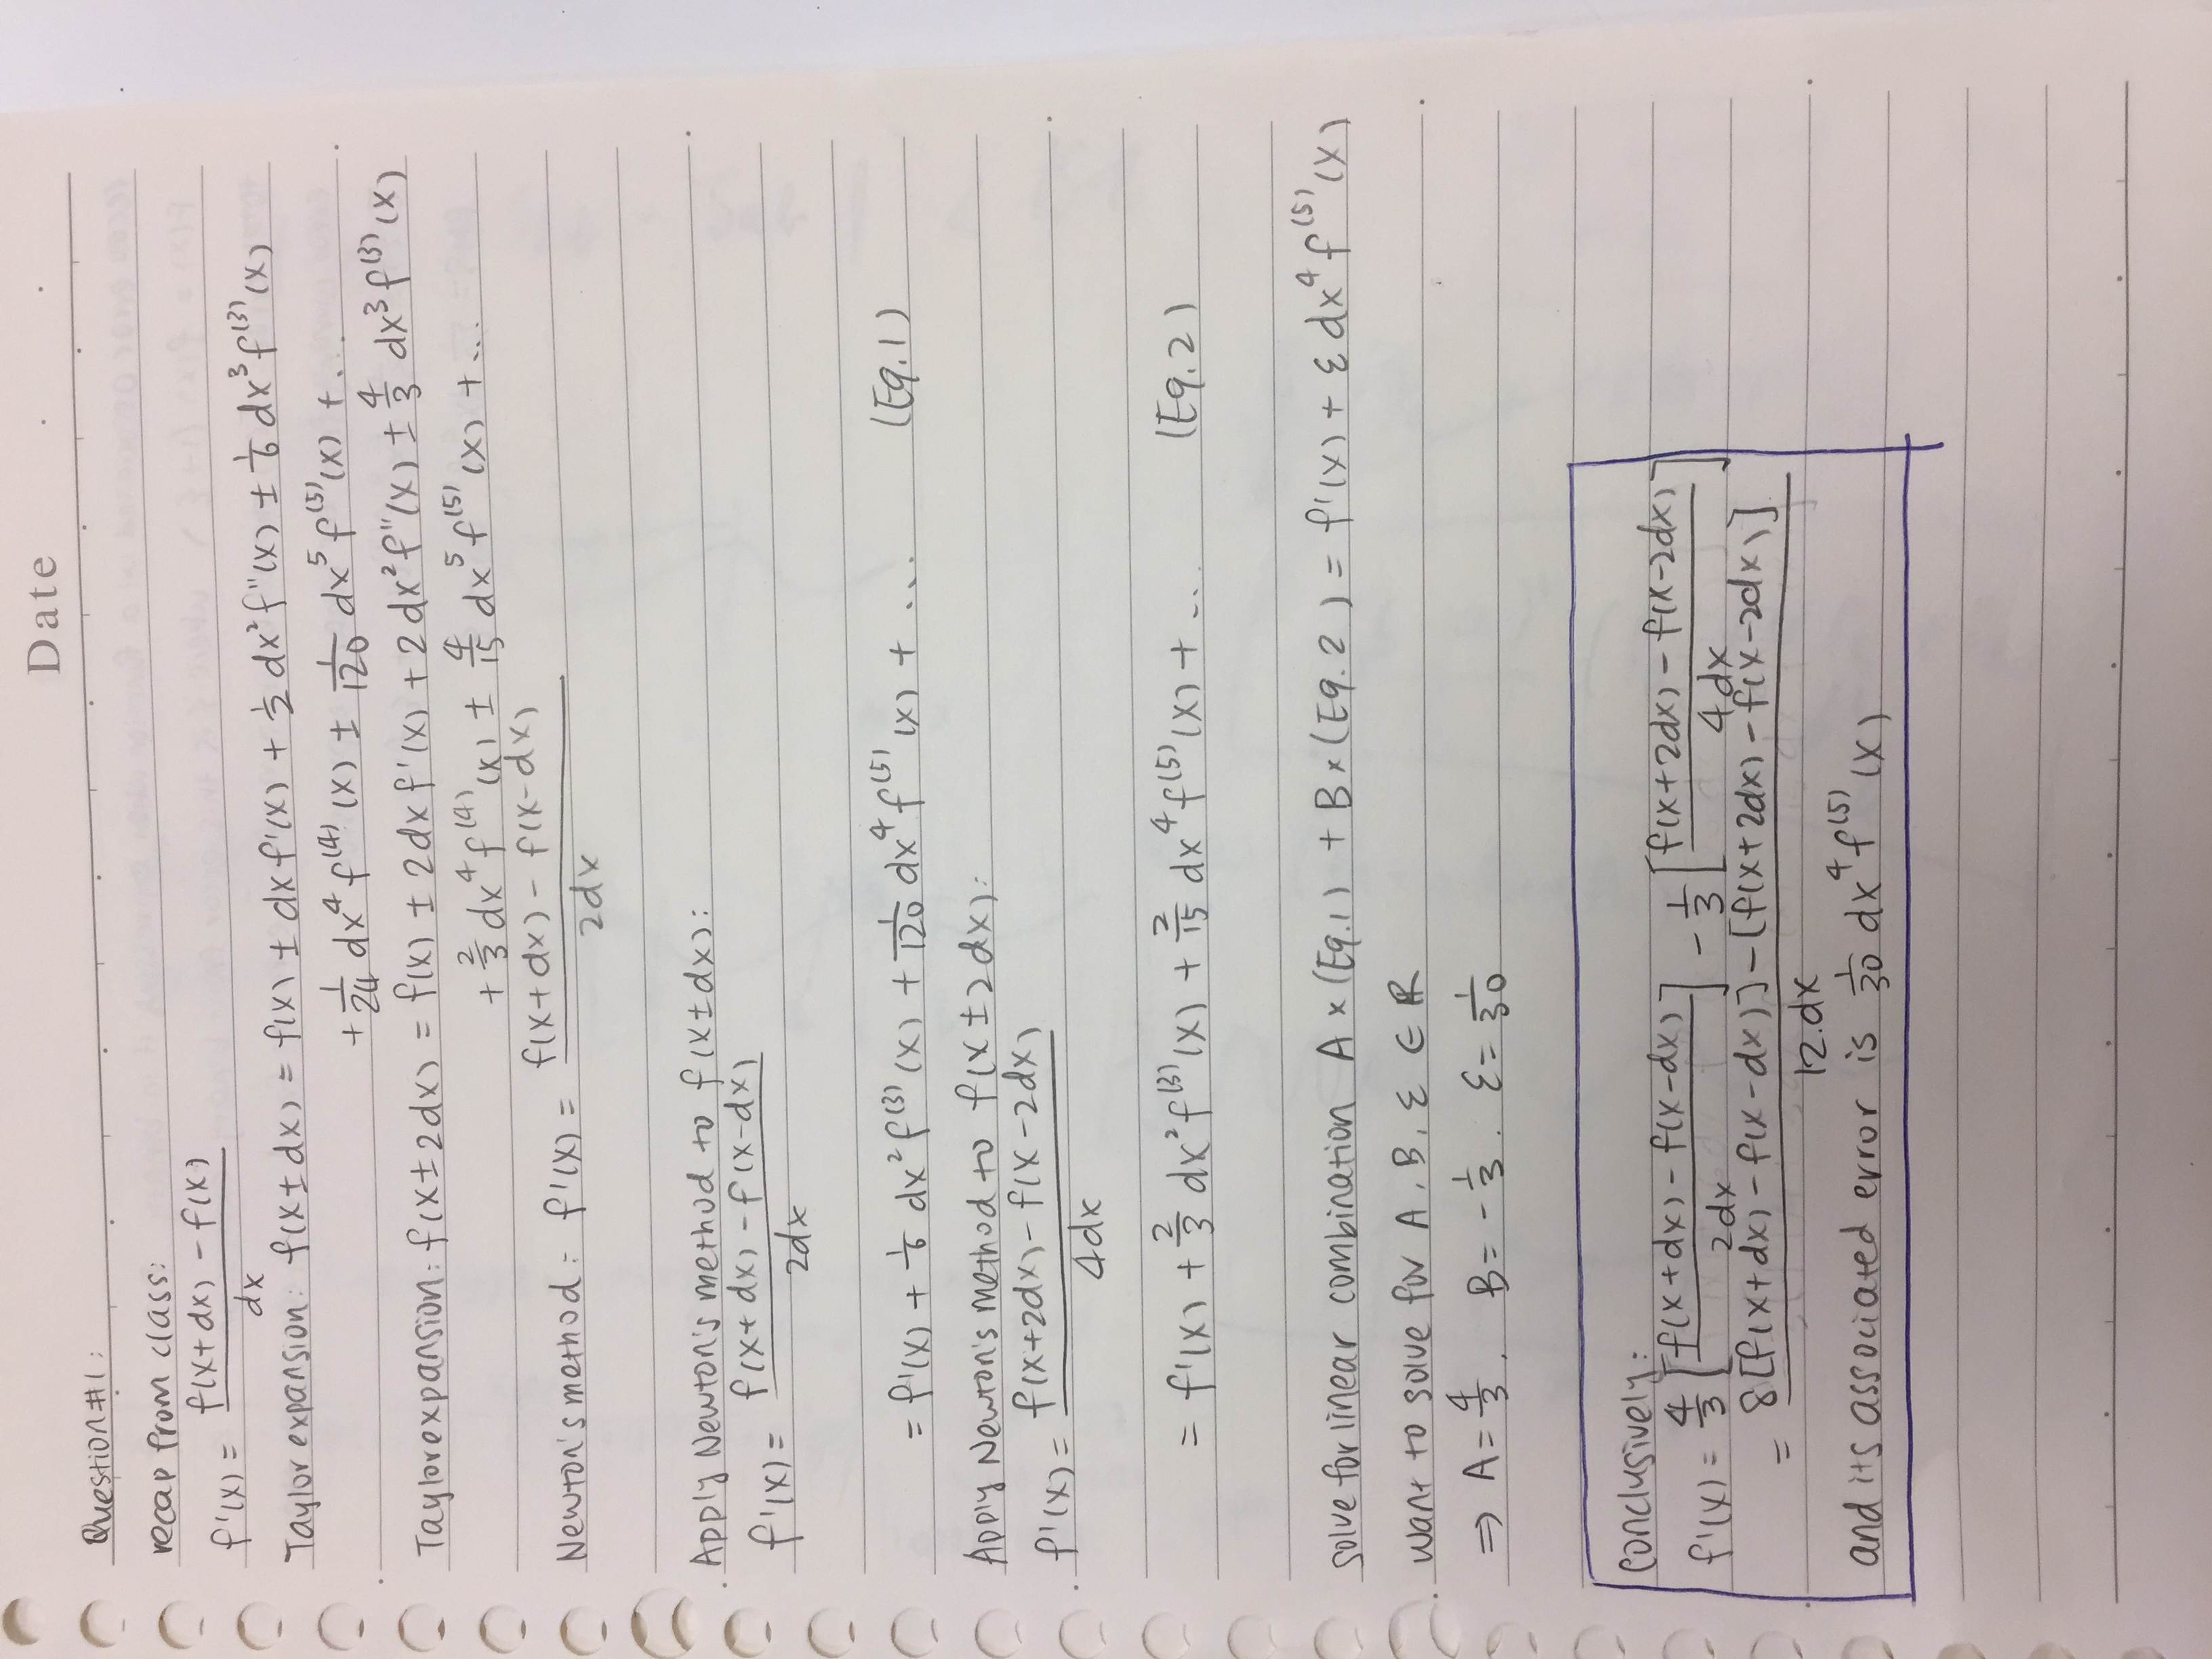 Date
Question#1:
recap from class:
f'(x) = (f(x+dx) - f(x)) / dx
Taylor expansion: f(x±dx) = f(x) ± dx f'(x) + 1/2 dx² f''(x) ± 1/6 dx³ f⁽³⁾(x)
+ 1/24 dx⁴ f⁽⁴⁾(x) ± 1/120 dx⁵ f⁽⁵⁾(x) + ...
Taylor expansion: f(x±2dx) = f(x) ± 2dx f'(x) + 2dx² f''(x) ± 4/3 dx³ f⁽³⁾(x)
+ 2/3 dx⁴ f⁽⁴⁾(x) ± 4/15 dx⁵ f⁽⁵⁾(x) + ...
Newton's method: f'(x) = (f(x+dx) - f(x-dx)) / 2dx
Apply Newton's method to f(x±dx):
f'(x) = (f(x+dx) - f(x-dx)) / 2dx
= f'(x) + 1/6 dx² f⁽³⁾(x) + 1/120 dx⁴ f⁽⁵⁾(x) + ... (Eq.1)
Apply Newton's method to f(x±2dx):
f'(x) = (f(x+2dx) - f(x-2dx)) / 4dx
= f'(x) + 2/3 dx² f⁽³⁾(x) + 2/15 dx⁴ f⁽⁵⁾(x) + ... (Eq.2)
solve for linear combination A×(Eq.1) + B×(Eq.2) = f'(x) + ε dx⁴ f⁽⁵⁾(x)
want to solve for A, B, ε ∈ ℝ
⇒ A = 4/3, B = -1/3. ε = 1/30
Conclusively:
f'(x) = 4/3 [(f(x+dx) - f(x-dx)) / 2dx] - 1/3 [(f(x+2dx) - f(x-2dx)) / 4dx]
= (8[f(x+dx) - f(x-dx)] - [f(x+2dx) - f(x-2dx)]) / 12.dx
and its associated error is 1/30 dx⁴ f⁽⁵⁾(x)